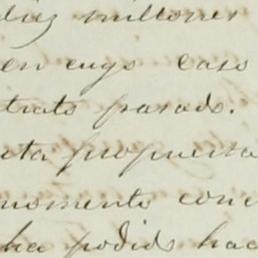 diez millones
en cuyo caso
trato pasado.
propuesta
momento
ha podido hac